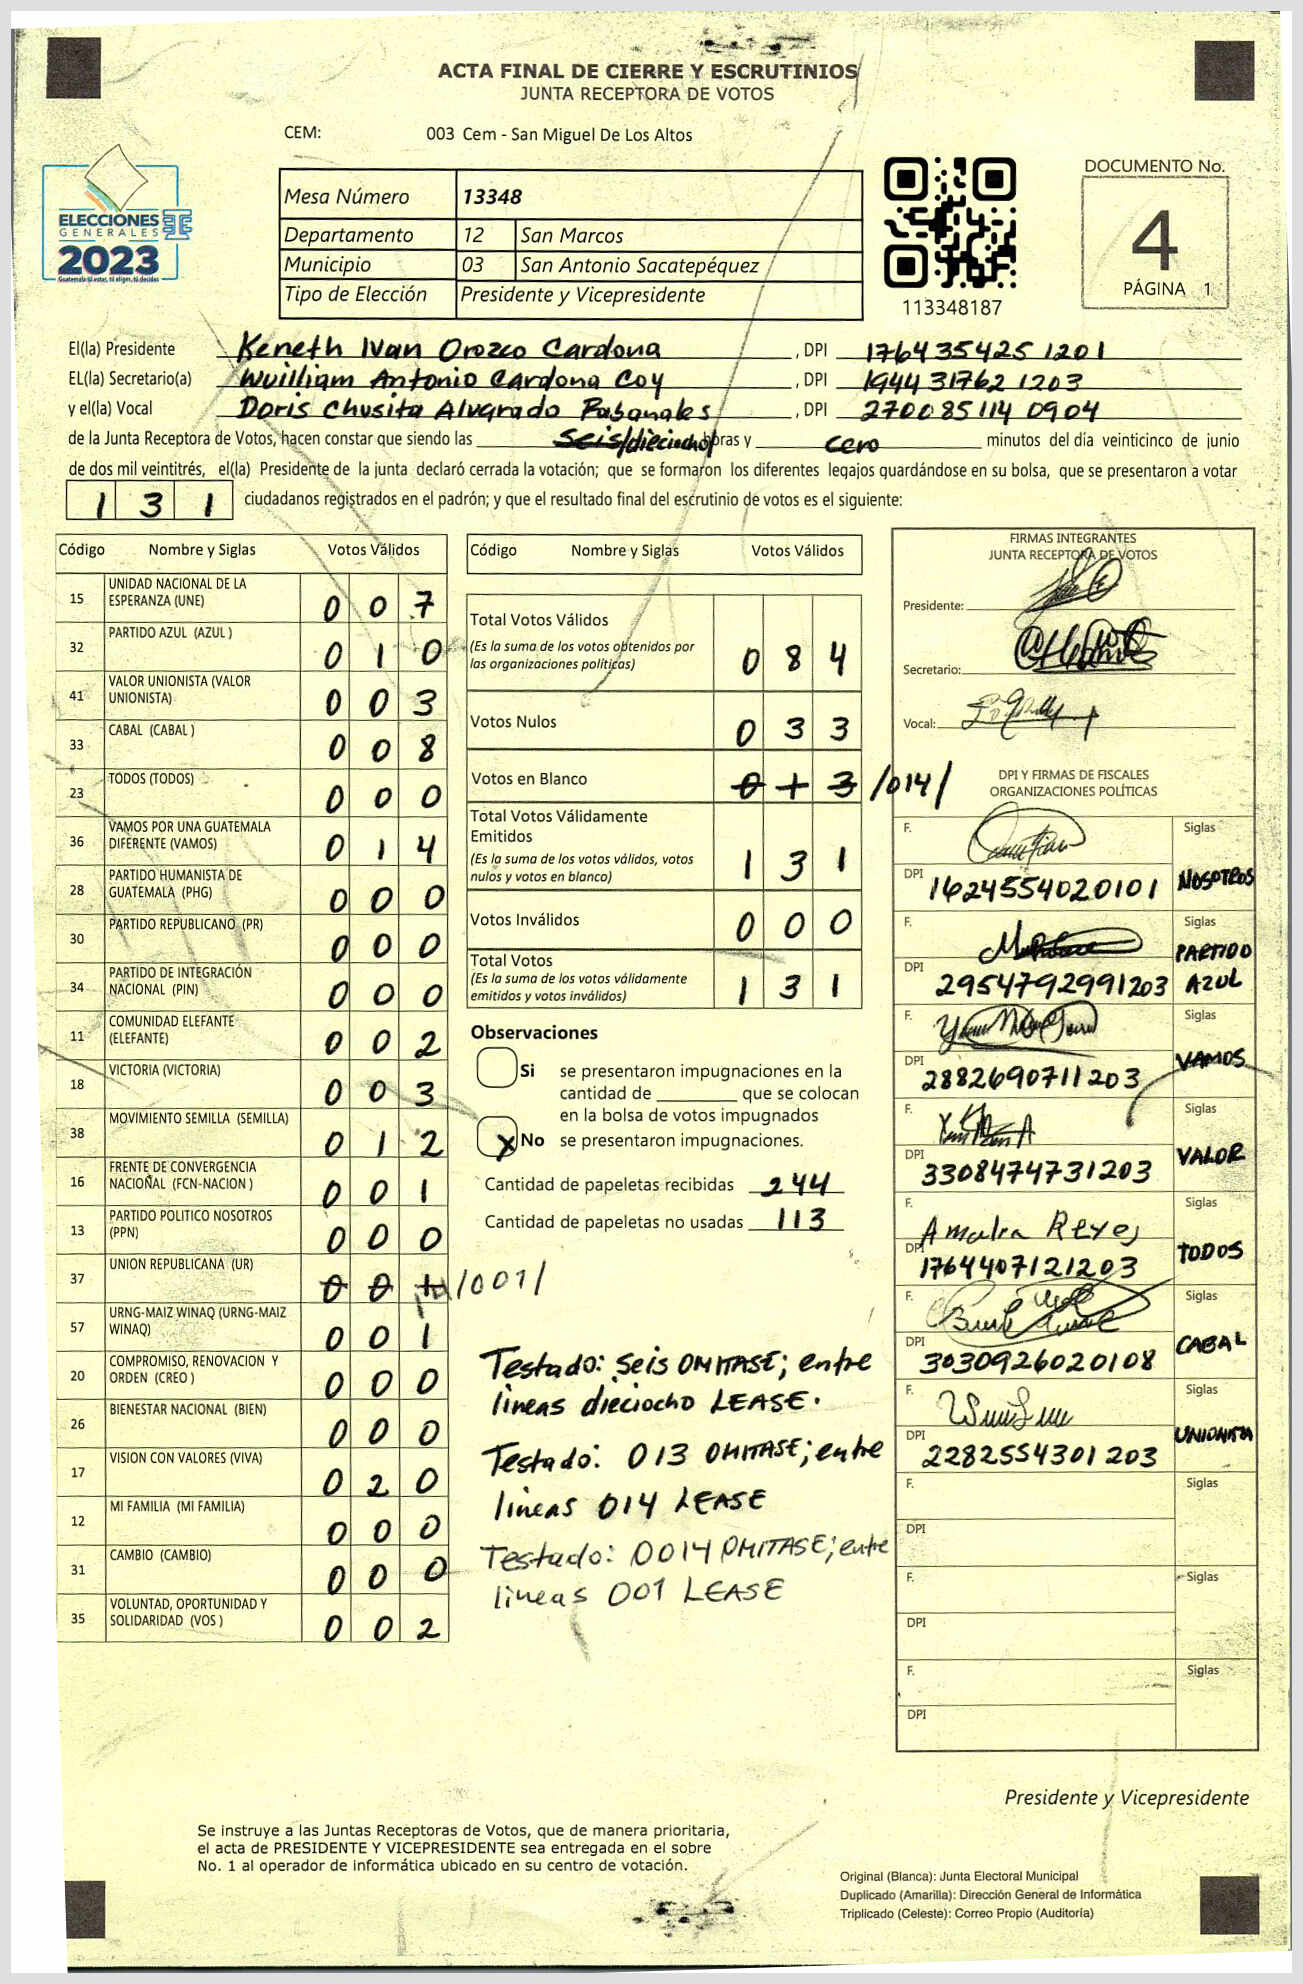 ACTA FINAL DE CIERRE Y ESCRUTINIOS
JUNTA RECEPTORA DE VOTOS
CEM: 003 Cem - San Miguel De Los Altos
ELECCIONES
GENERALES
2023
Guatemala tú votas, tú eliges, tú decides
Mesa Número 13348
Departamento 12 San Marcos
Municipio 03 San Antonio Sacatepéquez
Tipo de Elección Presidente y Vicepresidente
113348187
DOCUMENTO No.
4
PÁGINA 1
El(la) Presidente Keneth Ivan Orozco Cardona , DPI 1764354251201
EL(la) Secretario(a) Wuilliam Antonio Cardona Coy , DPI 1944317621203
y el(la) Vocal Doris Chusita Alvarado Rabanales , DPI 2700851140904
de la Junta Receptora de Votos, hacen constar que siendo las seis/dieciocho/ horas y cero minutos del día veinticinco de junio
de dos mil veintitrés, el(la) Presidente de la junta declaró cerrada la votación; que se formaron los diferentes legajos quardándose en su bolsa, que se presentaron a votar
131 ciudadanos registrados en el padrón; y que el resultado final del escrutinio de votos es el siguiente:
Código Nombre y Siglas Votos Válidos
15 UNIDAD NACIONAL DE LA ESPERANZA (UNE) 007
32 PARTIDO AZUL (AZUL ) 010
41 VALOR UNIONISTA (VALOR UNIONISTA) 003
33 CABAL (CABAL ) 008
23 TODOS (TODOS) 000
36 VAMOS POR UNA GUATEMALA DIFERENTE (VAMOS) 014
28 PARTIDO HUMANISTA DE GUATEMALA (PHG) 000
30 PARTIDO REPUBLICANO (PR) 000
34 PARTIDO DE INTEGRACIÓN NACIONAL (PIN) 000
11 COMUNIDAD ELEFANTE (ELEFANTE) 002
18 VICTORIA (VICTORIA) 003
38 MOVIMIENTO SEMILLA (SEMILLA) 012
16 FRENTE DE CONVERGENCIA NACIONAL (FCN-NACION ) 001
13 PARTIDO POLITICO NOSOTROS (PPN) 000
37 UNION REPUBLICANA (UR) 001 /001/
57 URNG-MAIZ WINAQ (URNG-MAIZ WINAQ) 001
20 COMPROMISO, RENOVACION Y ORDEN (CREO ) 000
26 BIENESTAR NACIONAL (BIEN) 000
17 VISION CON VALORES (VIVA) 020
12 MI FAMILIA (MI FAMILIA) 000
31 CAMBIO (CAMBIO) 000
35 VOLUNTAD, OPORTUNIDAD Y SOLIDARIDAD (VOS ) 002
Código Nombre y Siglas Votos Válidos
Total Votos Válidos 084
(Es la suma de los votos obtenidos por
las organizaciones políticas)
Votos Nulos 033
Votos en Blanco 013 /014/
Total Votos Válidamente
Emitidos 131
(Es la suma de los votos válidos, votos
nulos y votos en blanco)
Votos Inválidos 000
Total Votos 131
(Es la suma de los votos válidamente
emitidos y votos inválidos)
Observaciones
Si se presentaron impugnaciones en la
cantidad de ________ que se colocan
en la bolsa de votos impugnados
X No se presentaron impugnaciones.
Cantidad de papeletas recibidas 244
Cantidad de papeletas no usadas 113
Testado: seis OMITASE; entre
lineas dieciocho LEASE.
Testado: 013 OMITASE; entre
lineas 014 LEASE
Testado: 0014 OMITASE; entre
lineas 001 LEASE
FIRMAS INTEGRANTES
JUNTA RECEPTORA DE VOTOS
Presidente:
Secretario:
Vocal:
DPI Y FIRMAS DE FISCALES
ORGANIZACIONES POLÍTICAS
F. Siglas
DPI 1624554020101 NOSOTROS
F. Siglas
DPI 2954792991203 PARTIDO AZUL
F. Siglas
DPI 2882690711203 VAMOS
F. Siglas
DPI 3308474731203 VALOR
F. Amalia Reyes Siglas
DPI 1764407121203 TODOS
F. Siglas
DPI 3030926020108 CABAL
F. Siglas
DPI 2282554301203 UNIONISTA
F. Siglas
DPI
F. Siglas
DPI
F. Siglas
DPI
Presidente y Vicepresidente
Se instruye a las Juntas Receptoras de Votos, que de manera prioritaria,
el acta de PRESIDENTE Y VICEPRESIDENTE sea entregada en el sobre
No. 1 al operador de informática ubicado en su centro de votación.
Original (Blanca): Junta Electoral Municipal
Duplicado (Amarilla): Dirección General de Informática
Triplicado (Celeste): Correo Propio (Auditoría)